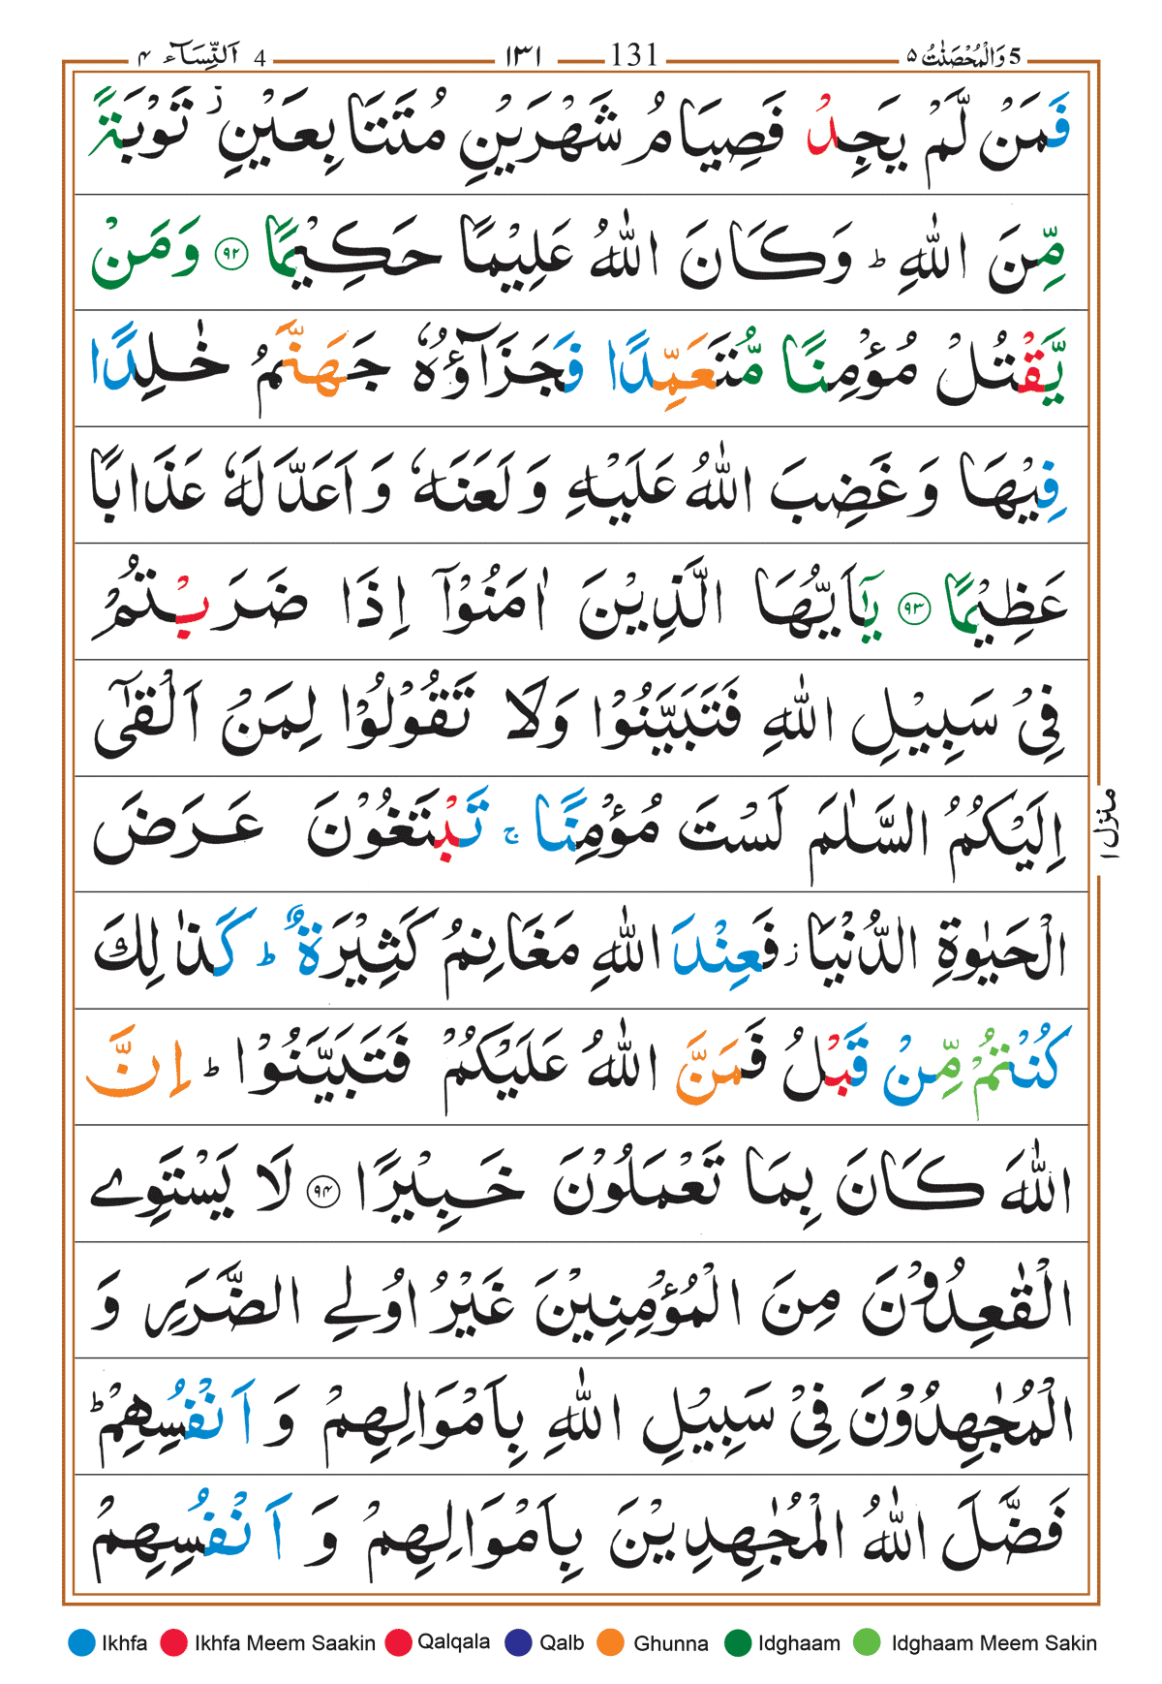 اَلنِّسَآء ٤ 4 ١٣١ 131 وَالْمُحْصَنٰتُ ٥ 5
فَمَنْ لَّمْ يَجِدْ فَصِيَامُ شَهْرَيْنِ مُتَتَابِعَيْنِ ز تَوْبَةً
مِّنَ اللّٰهِ ؕ وَكَانَ اللّٰهُ عَلِيْمًا حَكِيْمًا ۝٩٢ وَمَنْ
يَّقْتُلْ مُؤْمِنًا مُّتَعَمِّدًا فَجَزَآؤُهٗ جَهَنَّمُ خٰلِدًا
فِيْهَا وَغَضِبَ اللّٰهُ عَلَيْهِ وَلَعَنَهٗ وَاَعَدَّ لَهٗ عَذَابًا
عَظِيْمًا ۝٩٣ يٰۤاَيُّهَا الَّذِيْنَ اٰمَنُوْۤا اِذَا ضَرَبْتُمْ
فِيْ سَبِيْلِ اللّٰهِ فَتَبَيَّنُوْا وَلَا تَقُوْلُوْا لِمَنْ اَلْقٰۤى
اِلَيْكُمُ السَّلٰمَ لَسْتَ مُؤْمِنًا ۚ تَبْتَغُوْنَ عَرَضَ
الْحَيٰوةِ الدُّنْيَا ز فَعِنْدَ اللّٰهِ مَغَانِمُ كَثِيْرَةٌ ؕ كَذٰلِكَ
كُنْتُمْ مِّنْ قَبْلُ فَمَنَّ اللّٰهُ عَلَيْكُمْ فَتَبَيَّنُوْا ؕ اِنَّ
اللّٰهَ كَانَ بِمَا تَعْمَلُوْنَ خَبِيْرًا ۝٩٤ لَا يَسْتَوِے
الْقٰعِدُوْنَ مِنَ الْمُؤْمِنِيْنَ غَيْرُ اُولِے الضَّرَرِ وَ
الْمُجٰهِدُوْنَ فِيْ سَبِيْلِ اللّٰهِ بِاَمْوَالِهِمْ وَ اَنْفُسِهِمْ ؕ
فَضَّلَ اللّٰهُ الْمُجٰهِدِيْنَ بِاَمْوَالِهِمْ وَ اَنْفُسِهِمْ
منزل ١
Ikhfa Ikhfa Meem Saakin Qalqala Qalb Ghunna Idghaam Idghaam Meem Sakin